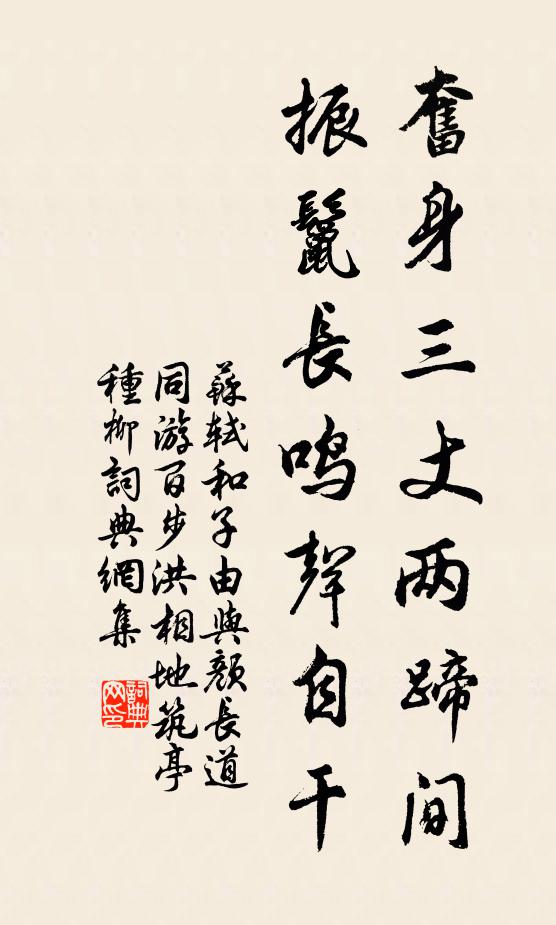 奮身三丈两蹄間
振鬣長鳴聲自干
蘇軾和子由與顏長道
同游百步洪相地筑亭
種柳詞典網集
詞典
网印